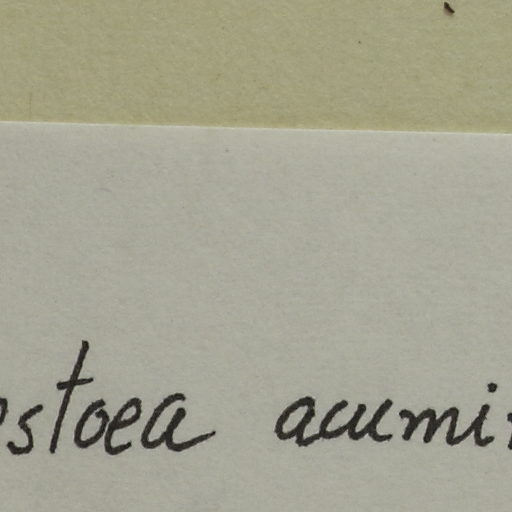 estoea acumin